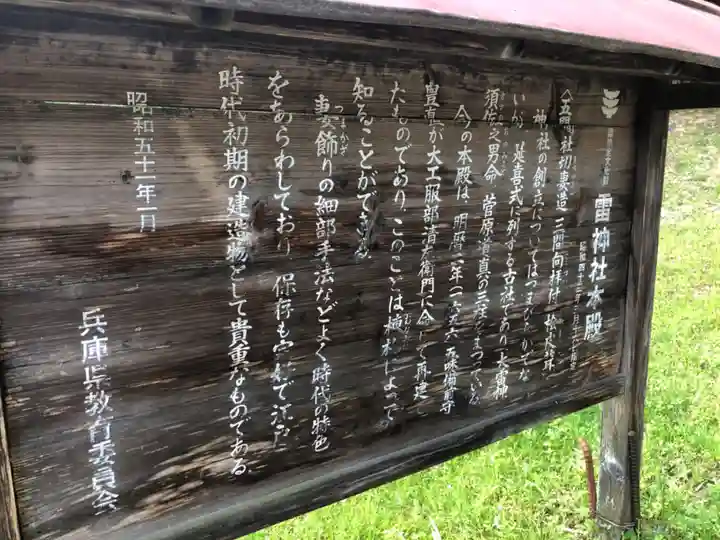 雷神社本殿
神社の創立についてはつまびらかでな
いが、延喜式に列する古社であり、大雷神
須佐之男命、菅原道真の三座をまつっている。
今の本殿は、明暦二年(一六五六)
豊真が大工服部清左衛門に命じて再建し
たものであり、このことは棟札によって
知ることができる。
妻飾りの細部手法などよく時代の特色
をあらわしており、保存も完好で江戸
時代初期の建造物として貴重なものである
昭和五十一年一月
兵庫県教育委員会